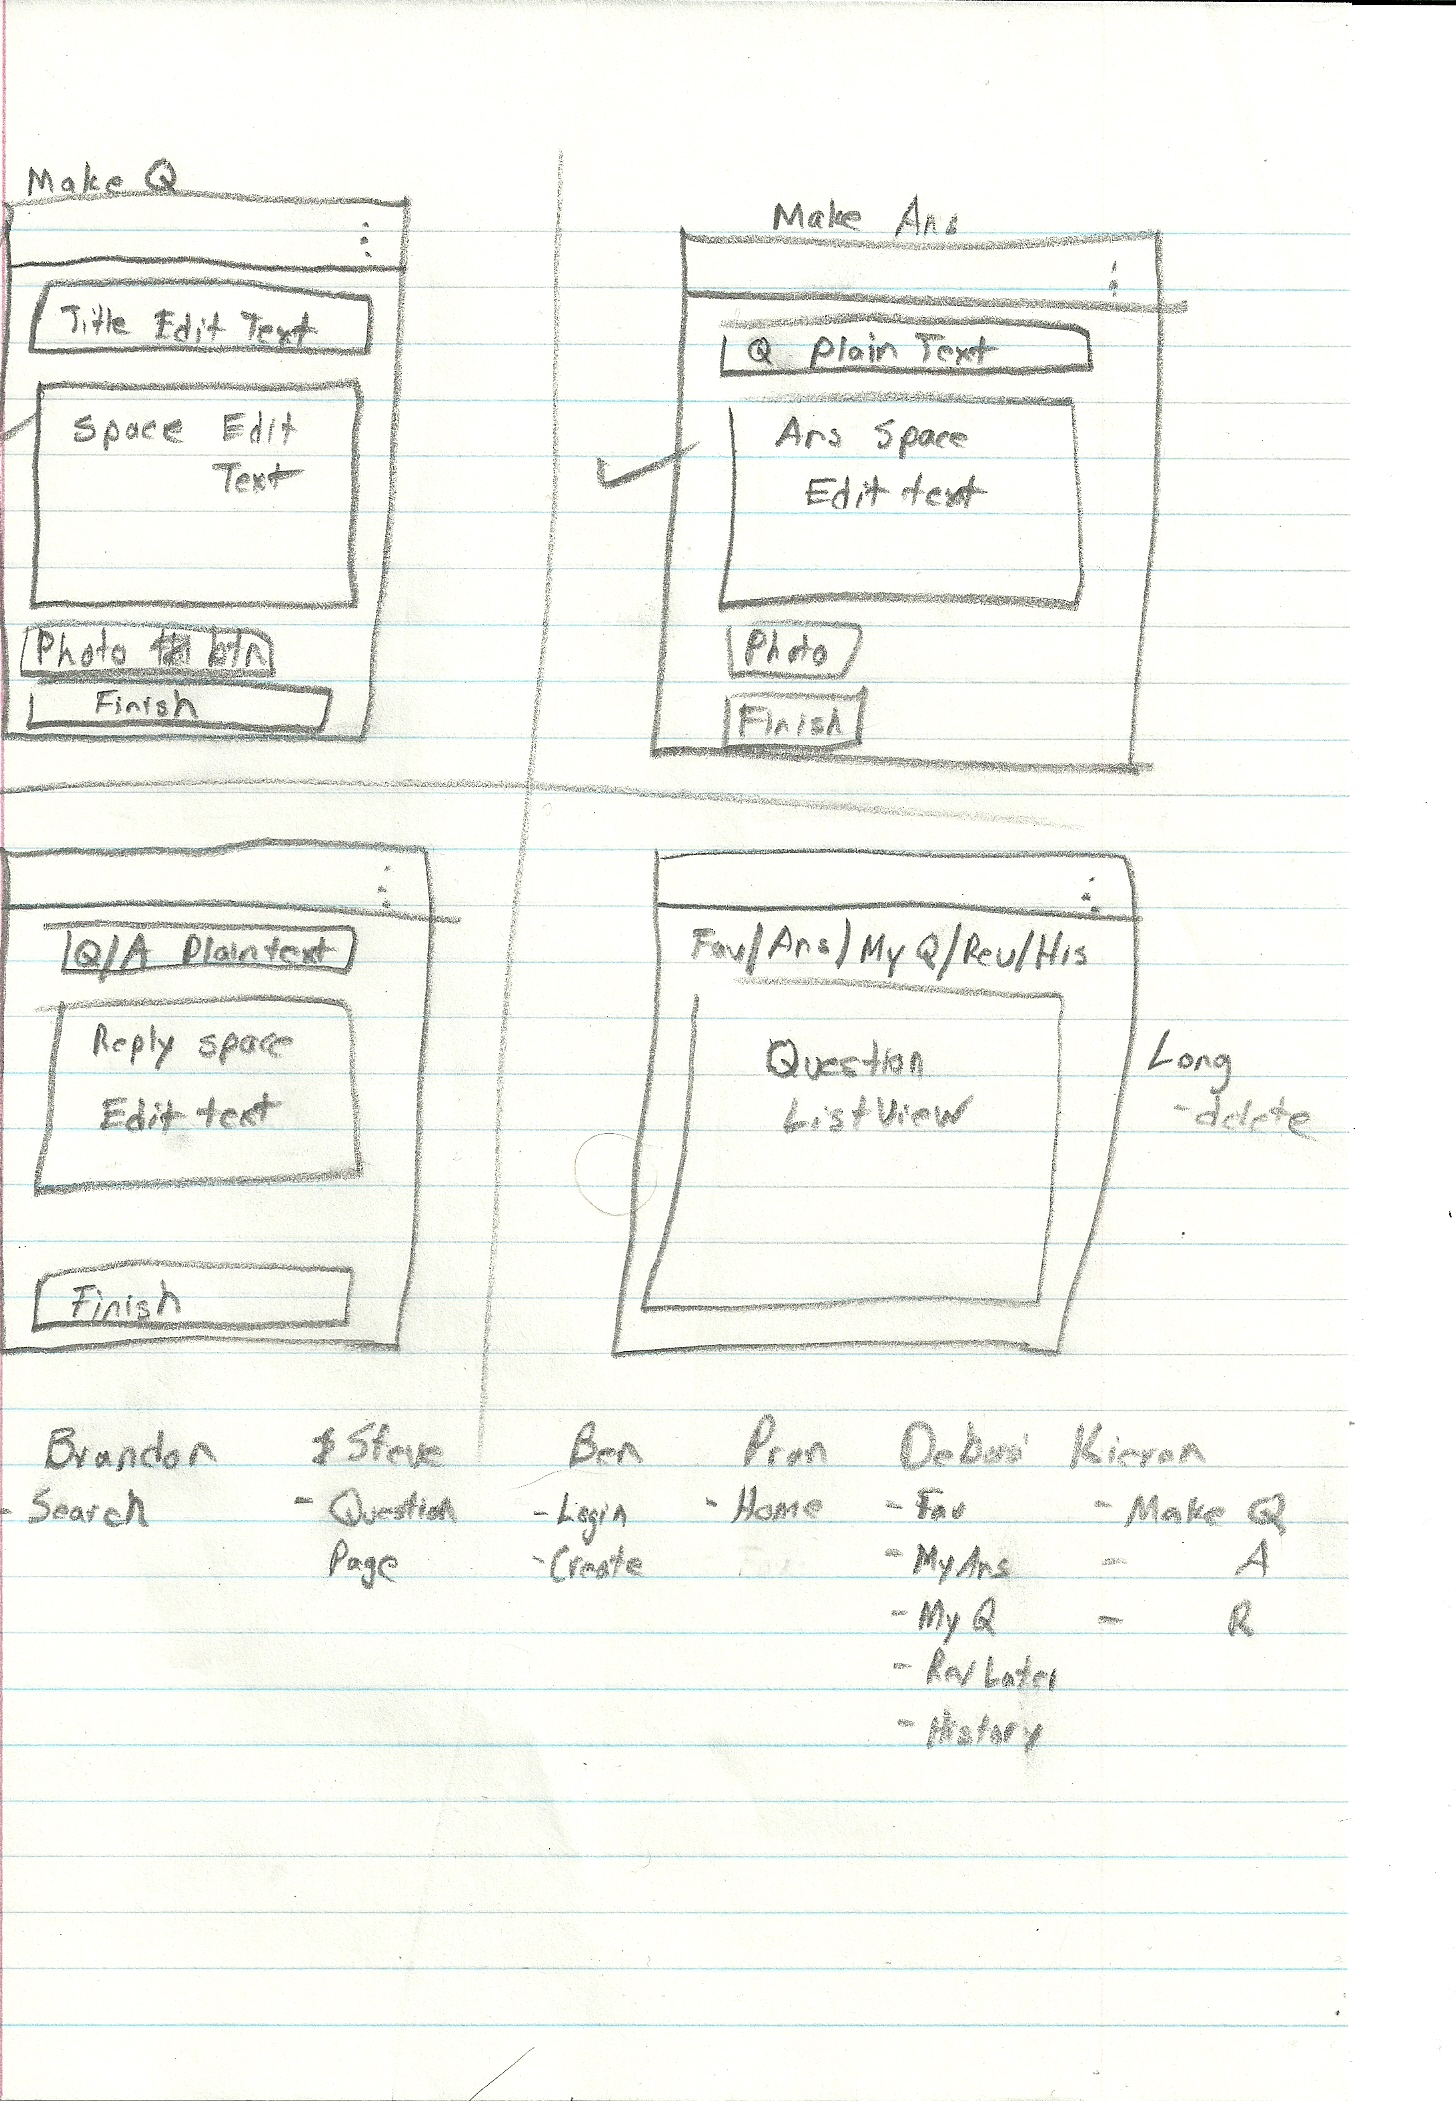 Make Q
Title Edit Text
Space Edit
Text
Photo btn
Finish
Make Ans
Q Plain Text
Ans Space
Edit text
Photo
Finish
Q/A Plaintext
Reply space
Edit text
Finish
Fav/Ans/My Q/Rev/His
Question
ListView
Long
- delete
Brandon
- Search
Steve
- Question
Page
Ben
- Login
- Create
Pran
- Home
- Fav
- My Ans
- My Q
- Rev Later
- History
Kieran
- Make Q
- A
- R